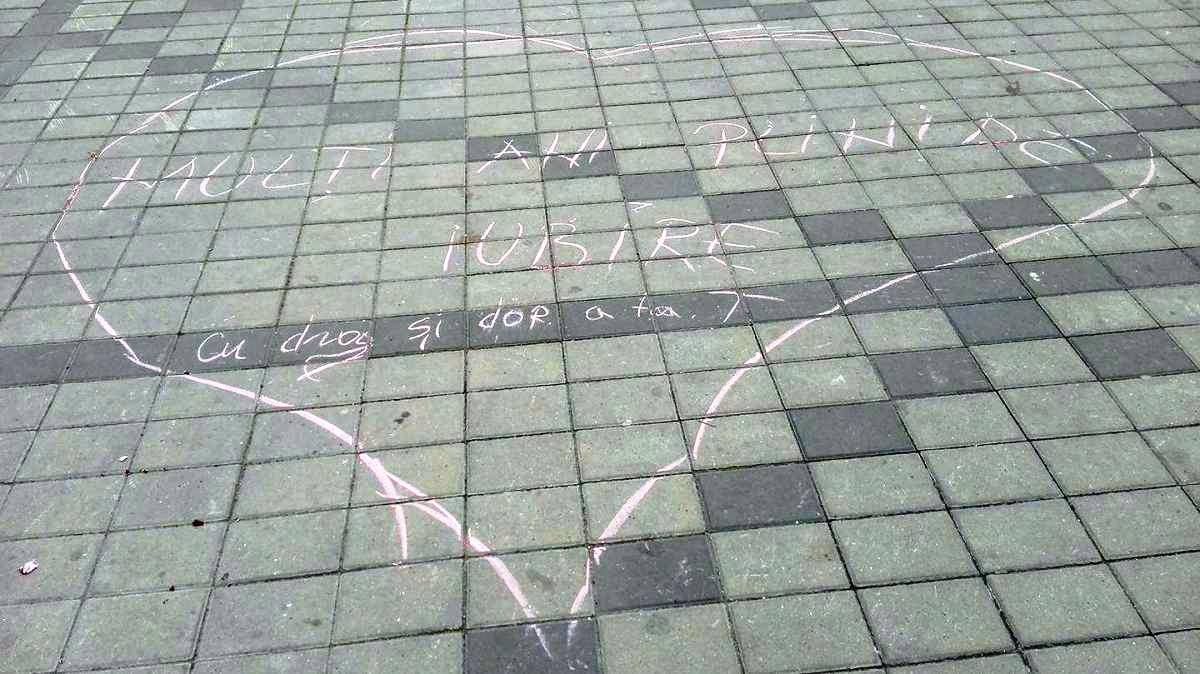 MULȚI ANI PLINI DE
IUBIRE
Cu drag și dor a ta.